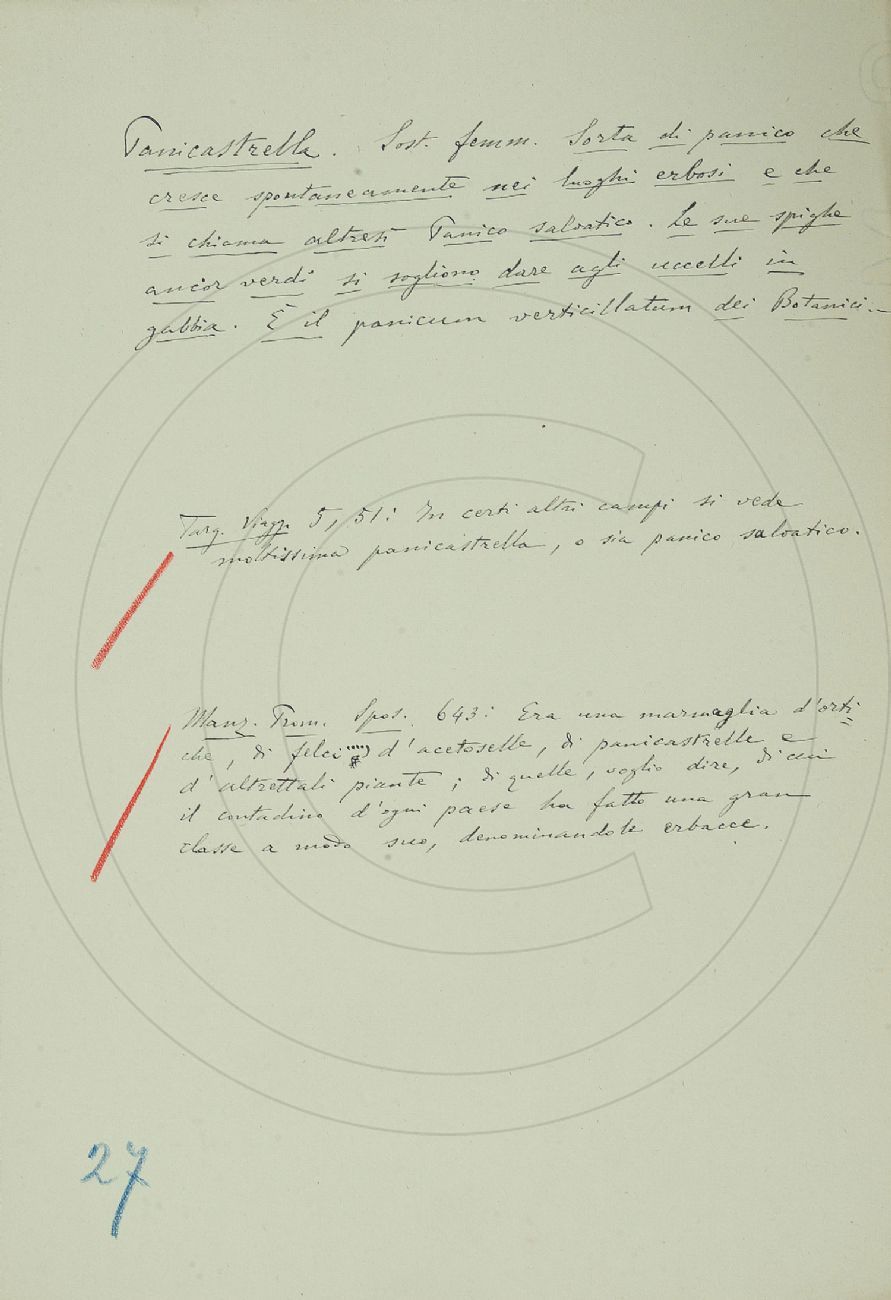 Panicastrella. Sost. femm. Sorta di panico che
cresce spontaneamente nei luoghi erbosi e che
si chiama altresì Panico salvatico. Le sue spighe
ancor verdi si sogliono dare agli uccelli in
gabbia. È il panicum verticillatum dei Botanici.–
Targ. Viagg. 5, 51: In certi altri campi si vede
moltissima panicastrella, o sia panico salvatico.
Manz. Prom. Spos. 643: Era una marmaglia d'orti=
che, di felci, d'acetoselle, di panicastrelle e
d'altrettali piante; di quelle, voglio dire, di cui
il contadino d'ogni paese ha fatto una gran
classe a modo suo, denominandole erbacce.
27